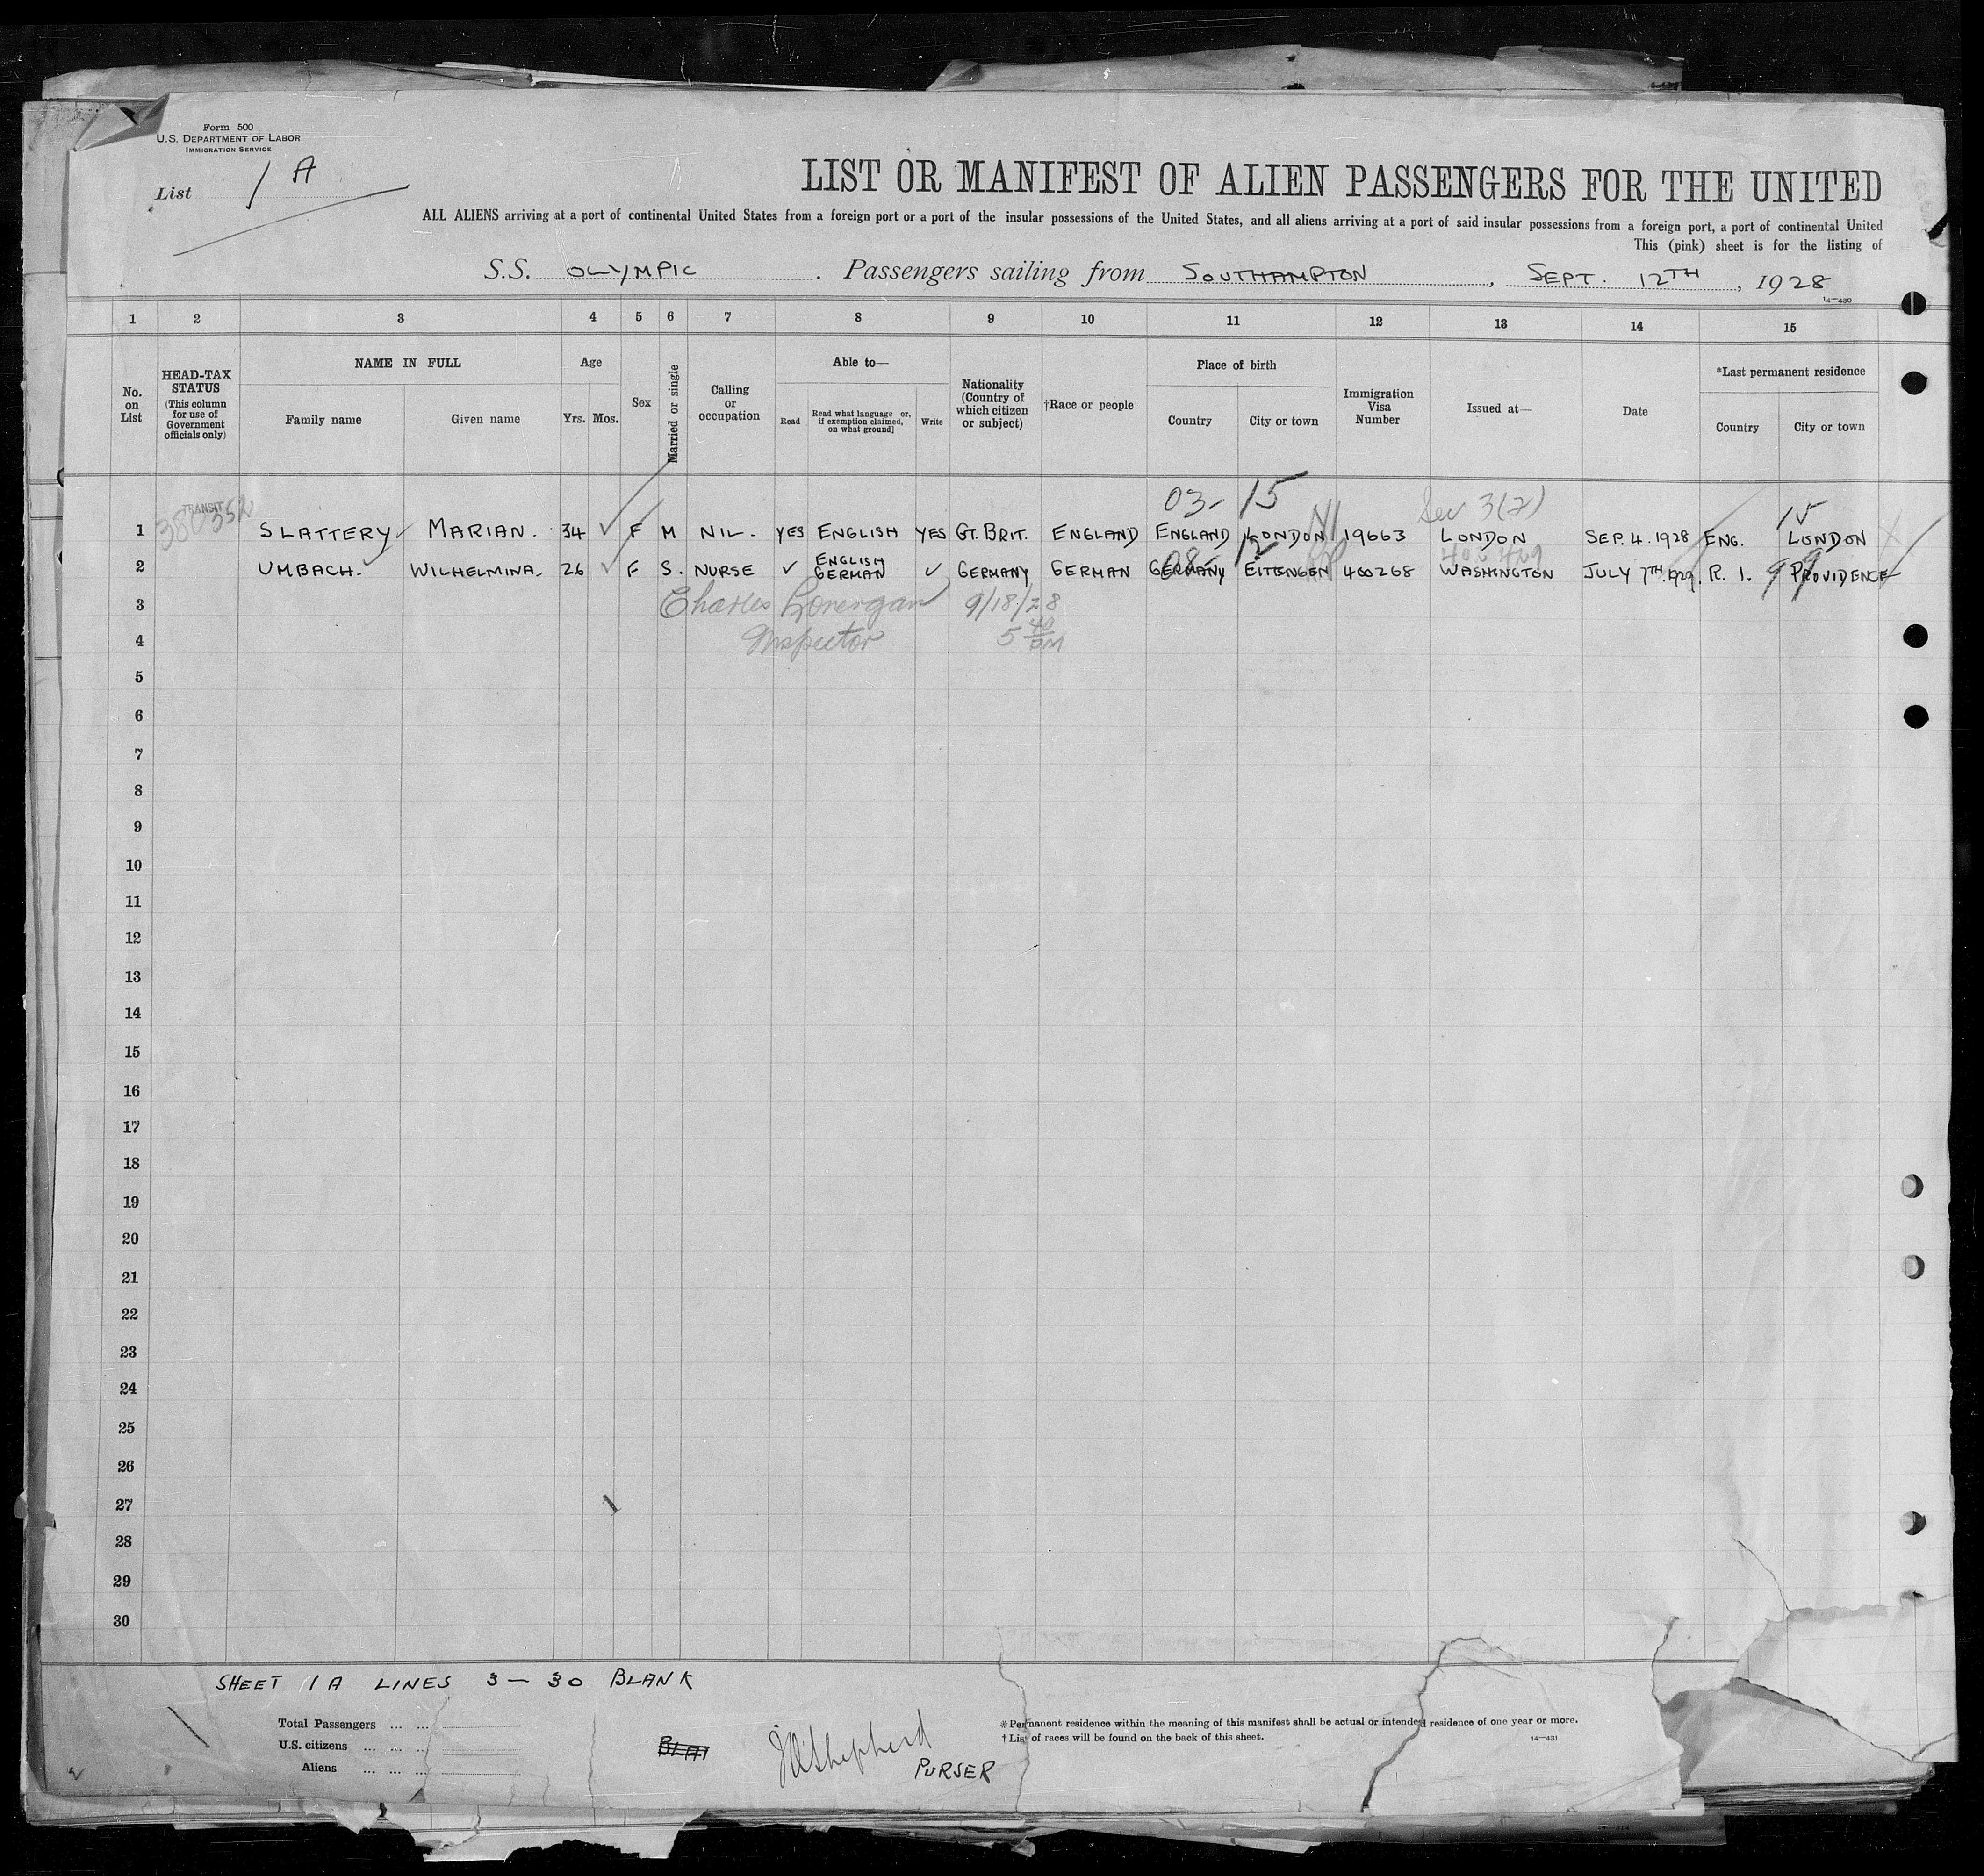 Form 500
U.S. DEPARTMENT OF LABOR
IMMIGRATION SERVICE
List 1 A
LIST OR MANIFEST OF ALIEN PASSENGERS FOR THE UNITED
ALL ALIENS arriving at a port of continental United States from a foreign port or a port of the insular possessions of the United States, and all aliens arriving at a port of said insular possessions from a foreign port, a port of continental United
This (pink) sheet is for the listing of
S.S. OLYMPIC . Passengers sailing from SOUTHAMPTON , SEPT. 12TH , 1928
14—430
1 2 3 4 5 6 7 8 9 10 11 12 13 14 15
No. on List
HEAD-TAX STATUS (This column for use of Government officials only)
NAME IN FULL
Family name Given name
Age
Yrs. Mos.
Sex
Married or single
Calling or occupation
Able to—
Read
Read what language or, if exemption claimed, on what ground]
Write
Nationality (Country of which citizen or subject)
†Race or people
Place of birth
Country City or town
Immigration Visa Number
Issued at—
Date
*Last permanent residence
Country City or town
03- 15 Sec 3(2)
TRANSIT 15
1 SLATTERY MARIAN. 34 F M NIL. YES ENGLISH YES GT. BRIT. ENGLAND ENGLAND LONDON 19663 LONDON SEP. 4. 1928 ENG. LONDON
2 UMBACH. WILHELMINA. 26 F S. NURSE ✓ ENGLISH GERMAN ✓ GERMANY GERMAN GERMANY 400268 WASHINGTON JULY 7TH R. I. 99 PROVIDENCE
3 Charles Lonergan 9/18/28
4 Inspector 5 40 PM
5
6
7
8
9
10
11
12
13
14
15
16
17
18
19
20
21
22
23
24
25
26
27
28
29
30
SHEET 1A LINES 3 — 30 BLANK
Total Passengers ... ...
U.S. citizens ... ... ...
Aliens ... ... ...
Shepherd
PURSER
*Permanent residence within the meaning of this manifest shall be actual or intended residence of one year or more.
†List of races will be found on the back of this sheet.
14—431